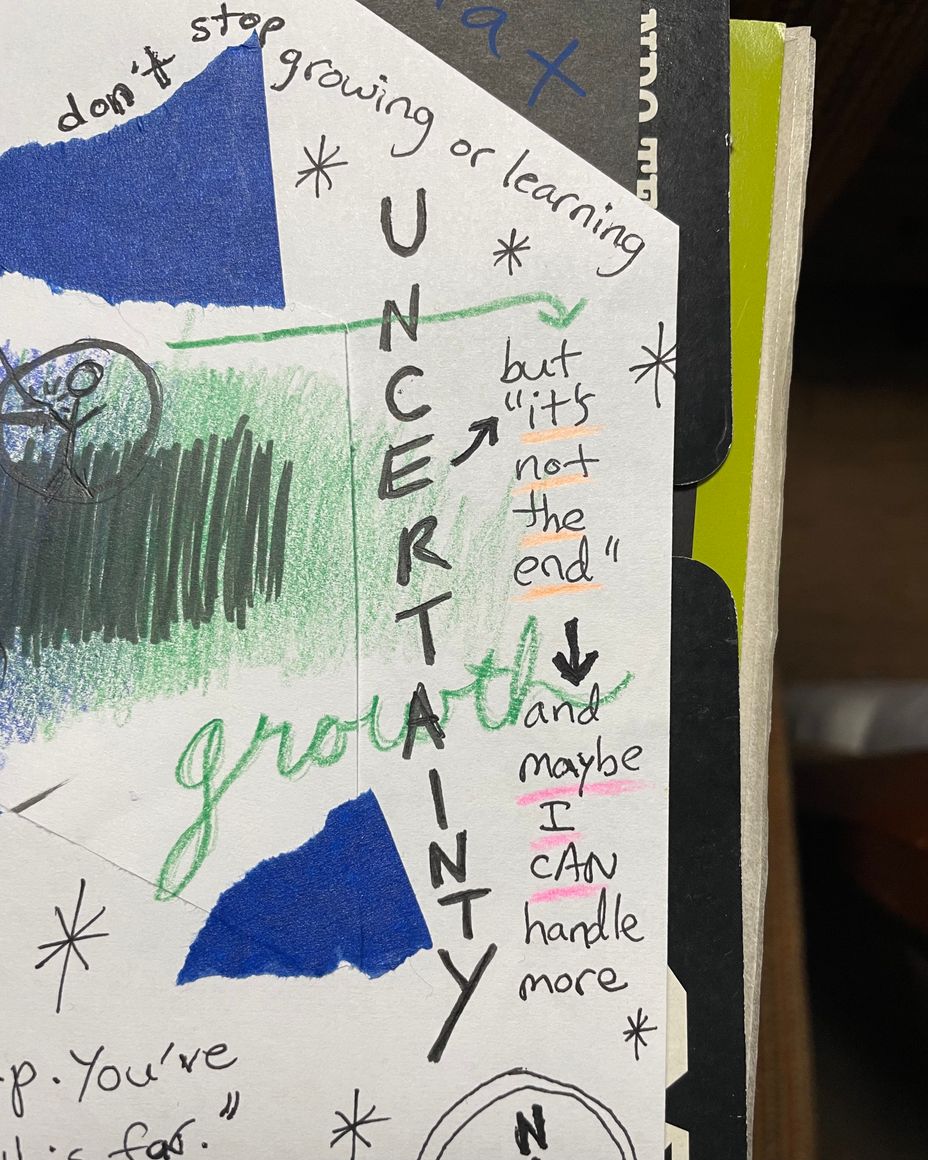 ax
don't stop growing or learning
UNCERTAINTY
but
"it's
not
the
end"
growth
and
maybe
I
CAN
handle
more
You've
far."
N